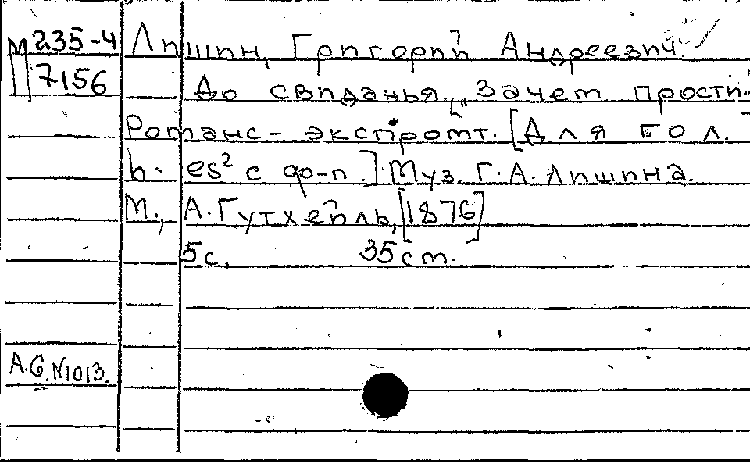 М 235-4
7156
Лишин, Григорий Андреевич.
До свиданья. „Зачем прости"
Романс-экспромт. [Для гол.
h- es² с ф-п.] Муз. Г. А. Лишина.
М., А. Гутхейль, [1876]
5 с. 35 см.
А.С. №1013.